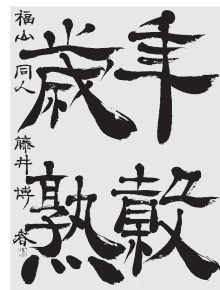 年穀
歳熟
福山 同人 藤井 博春